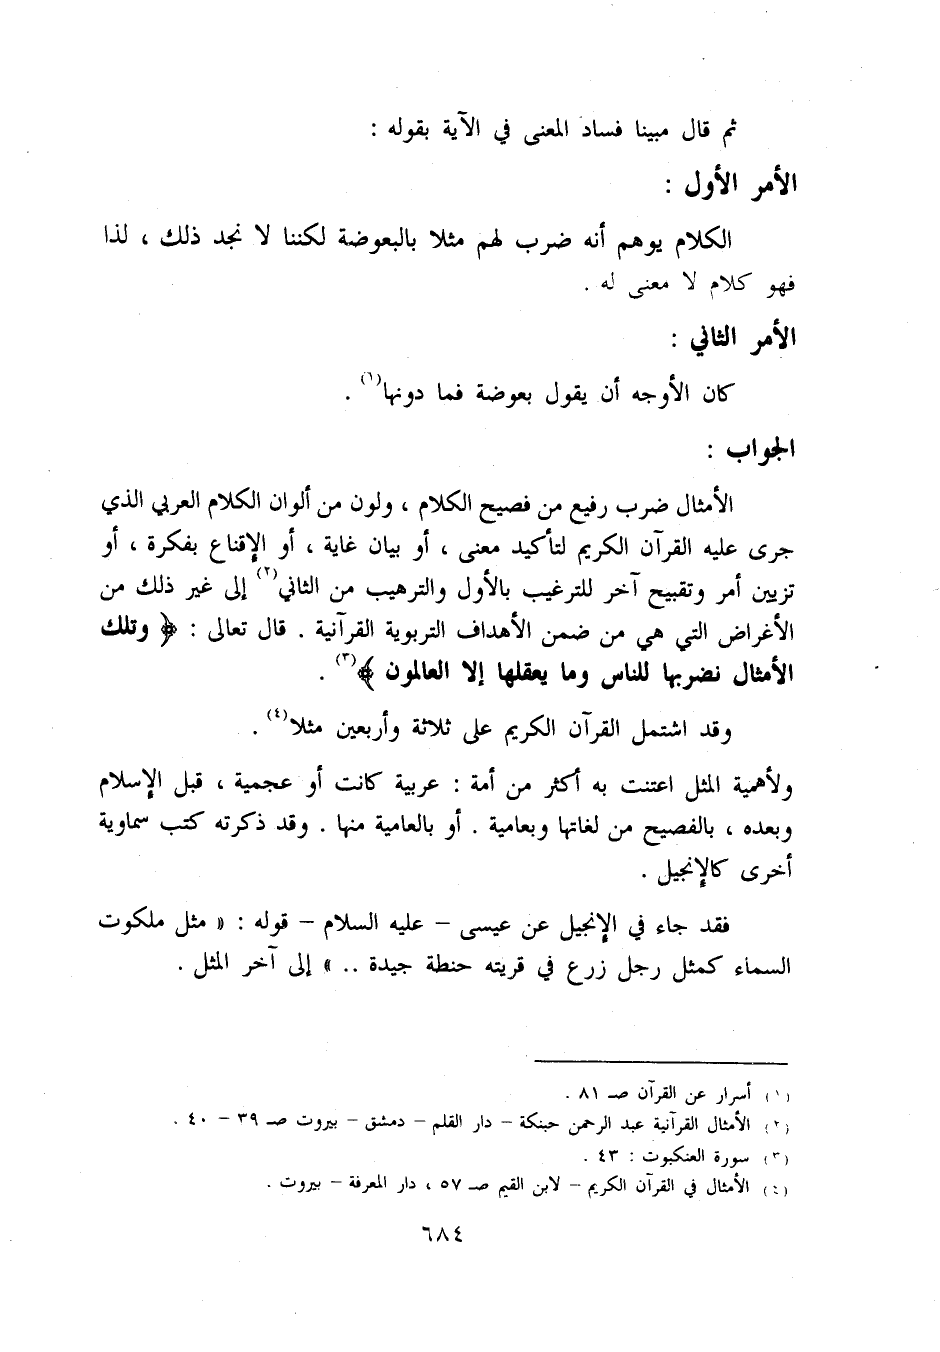 ثم قال مبينا فساد المعنى في الآية بقوله :
الأمر الأول :
الكلام يوهم أنه ضرب لهم مثلا بالبعوضة لكننا لا نجد ذلك ، لذا
فهو كلام لا معنى له .
الأمر الثاني :
كان الأوجه أن يقول بعوضة فما دونها(١) .
الجواب :
الأمثال ضرب رفيع من فصيح الكلام ، ولون من ألوان الكلام العربي الذي
جرى عليه القرآن الكريم لتأكيد معنى ، أو بيان غاية ، أو الإقناع بفكرة ، أو
تزيين أمر وتقبيح آخر للترغيب بالأول والترهيب من الثاني(٢) إلى غير ذلك من
الأغراض التي هي من ضمن الأهداف التربوية القرآنية . قال تعالى : ﴿ وتلك
الأمثال نضربها للناس وما يعقلها إلا العالمون ﴾(٣) .
وقد اشتمل القرآن الكريم على ثلاثة وأربعين مثلا(٤) .
ولأهمية المثل اعتنت به أكثر من أمة : عربية كانت أو عجمية ، قبل الإسلام
وبعده ، بالفصيح من لغاتها وبعامية . أو بالعامية منها . وقد ذكرته كتب سماوية
أخرى كالإنجيل .
فقد جاء في الإنجيل عن عيسى – عليه السلام – قوله : « مثل ملكوت
السماء كمثل رجل زرع في قريته حنطة جيدة .. » إلى آخر المثل .
(١) أسرار عن القرآن صـ ٨١ .
(٢) الأمثال القرآنية عبد الرحمن حبنكة – دار القلم – دمشق – بيروت صـ ٣٩ – ٤٠ .
(٣) سورة العنكبوت : ٤٣ .
(٤) الأمثال في القرآن الكريم – لابن القيم صـ ٥٧ ، دار المعرفة – بيروت .
٦٨٤